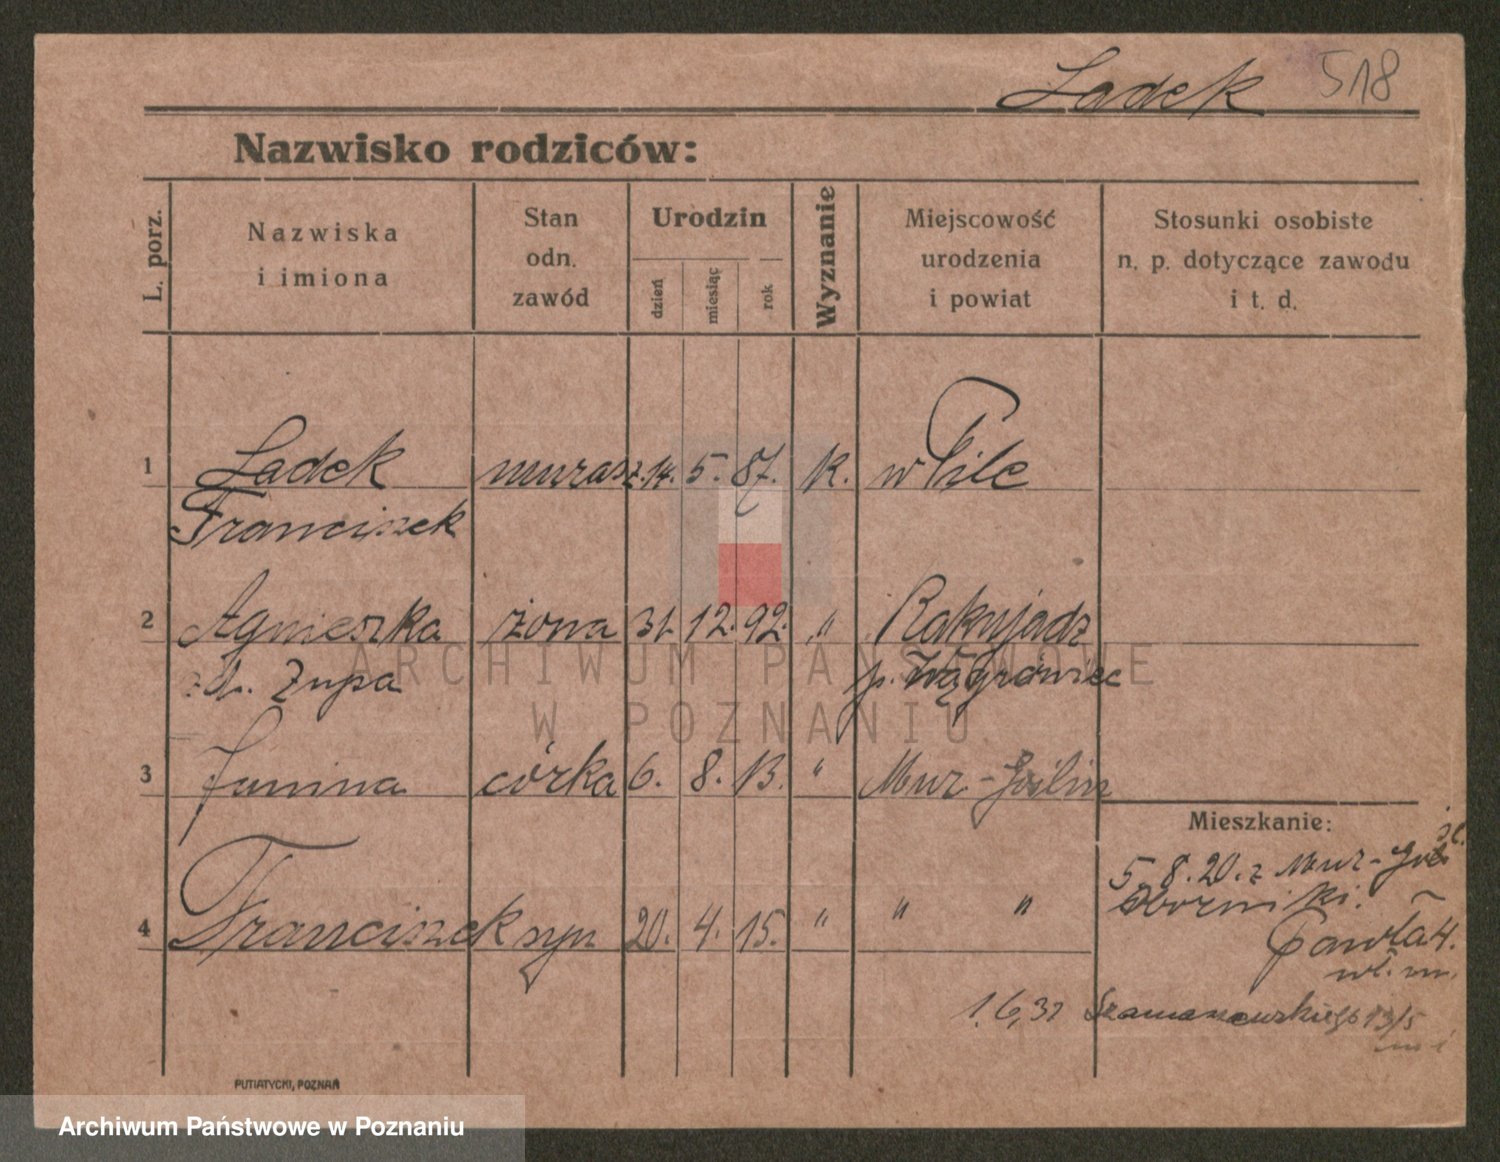 Ladek 518
Nazwisko rodziców:
L. porz.
Nazwiska
i imiona
Stan
odn.
zawód
Urodzin
dzień
miesiąc
rok
Wyznanie
Miejscowość
urodzenia
i powiat
Stosunki osobiste
n. p. dotyczące zawodu
i t. d.
1 Ladek murarz. 14. 5. 87. K. w Pile
Franciszek
2 Agnieszka żona 31. 12. 92. " Rakujadz
Zupa p. Wągrowiec
ARCHIWUM PAŃSTWOWE
W POZNANIU
3 Janina córka 6. 8. 13. " Mur-Goślin
Mieszkanie:
5. 8. 20. z Mur-Gośl.
Oborniki.
4 Franciszek syn 20. 4. 15. " " "
Pawła 4.
1. 6, 32 Szamarzewskiego 13/5
PUTIATYCKI, POZNAŃ
Archiwum Państwowe w Poznaniu